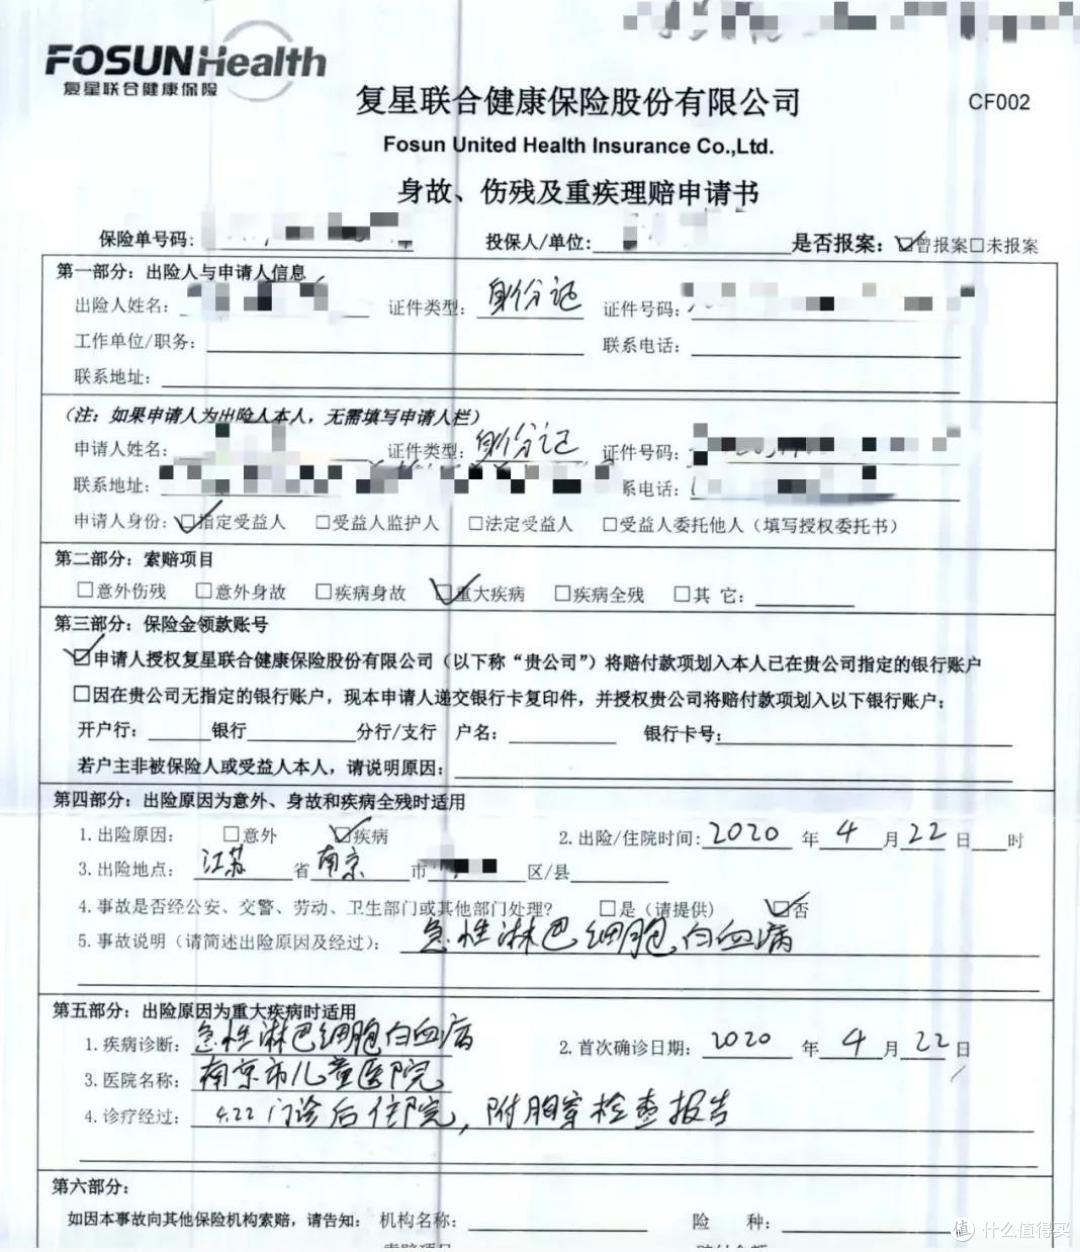 FOSUNHealth
复星联合健康保险
复星联合健康保险股份有限公司
CF002
Fosun United Health Insurance Co.,Ltd.
身故、伤残及重疾理赔申请书
保险单号码: 投保人/单位: 是否报案: ☑曾报案□未报案
第一部分: 出险人与申请人信息
出险人姓名: 证件类型: 身份证 证件号码:
工作单位/职务: 联系电话:
联系地址:
(注: 如果申请人为出险人本人, 无需填写申请人栏)
申请人姓名: 证件类型: 身份证 证件号码:
联系地址: 系电话:
申请人身份: ☑指定受益人 □受益人监护人 □法定受益人 □受益人委托他人 (填写授权委托书)
第二部分: 索赔项目
□意外伤残 □意外身故 □疾病身故 ☑重大疾病 □疾病全残 □其 它:
第三部分: 保险金领款账号
☑申请人授权复星联合健康保险股份有限公司 (以下称“贵公司”) 将赔付款项划入本人已在贵公司指定的银行账户
□因在贵公司无指定的银行账户, 现本申请人递交银行卡复印件, 并授权贵公司将赔付款项划入以下银行账户:
开户行: 银行 分行/支行 户名: 银行卡号:
若户主非被保险人或受益人本人, 请说明原因:
第四部分: 出险原因为意外、身故和疾病全残时适用
1.出险原因: □意外 ☑疾病 2.出险/住院时间: 2020 年 4 月 22 日 时
3.出险地点: 江苏 省 南京 市 区/县
4.事故是否经公安、交警、劳动、卫生部门或其他部门处理? □是 (请提供) ☑否
5.事故说明 (请简述出险原因及经过): 急性淋巴细胞白血病
第五部分: 出险原因为重大疾病时适用
1.疾病诊断: 急性淋巴细胞白血病 2.首次确诊日期: 2020 年 4 月 22 日
3.医院名称: 南京市儿童医院
4.诊疗经过: 4.22门诊后住院, 附胸穿检查报告
第六部分:
如因本事故向其他保险机构索赔, 请告知: 机构名称: 险 种:
值 什么值得买